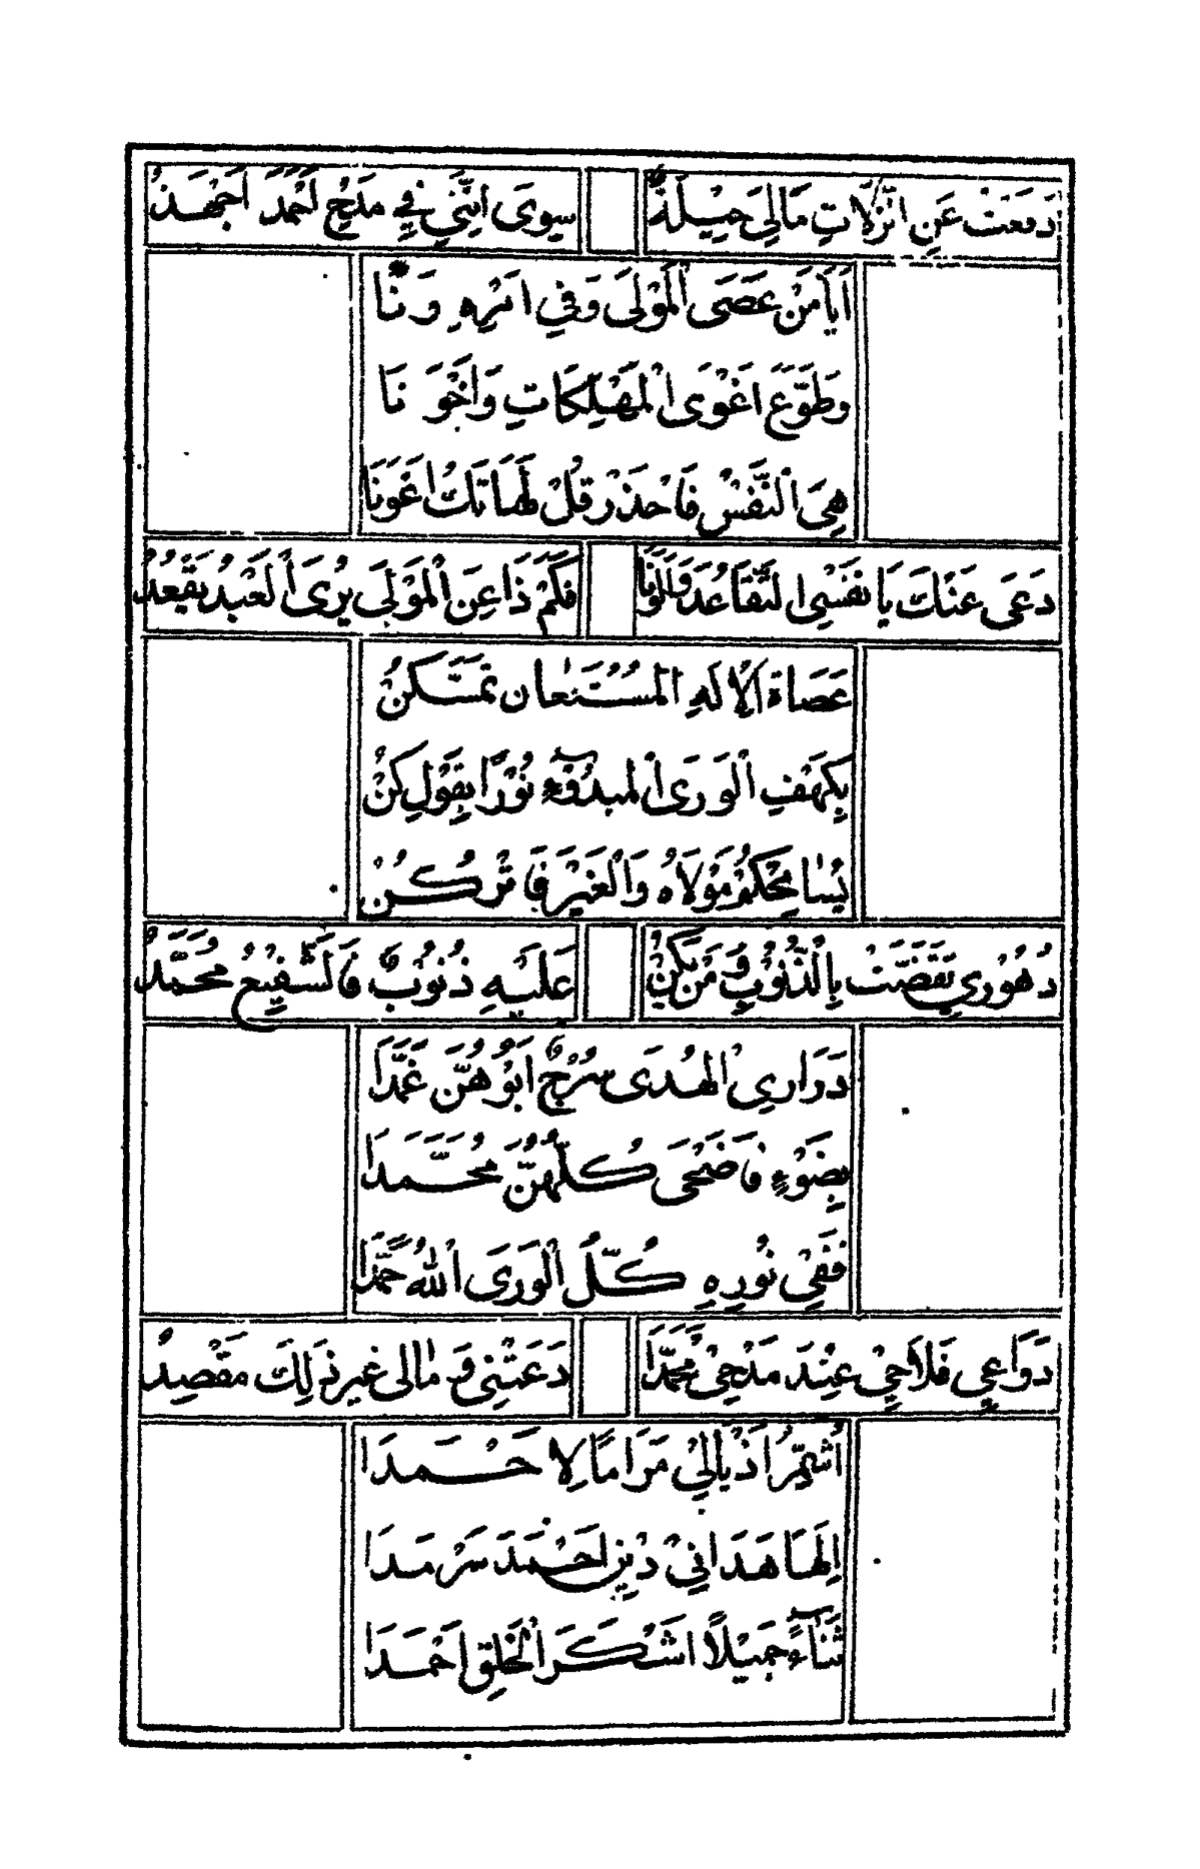 دَمَعَتْ عَنِ الزَّلَاتِ مَالِيَ حِيْلَةٌ سِوَى اَنَّنِي فِي مَدْحِ اَحْمَدَ اَجْهَدُ
اَيَا مَنْ عَصَى الْمَوْلَى وَفِي اَمْرِهِ وَنَا
وَطَوَّعَ اَغْوَى الْمُهْلِكَاتِ وَاَخْوَنَا
هِيَ النَّفْسُ فَاحْذَرْ قُلْ لَهَا تَكُ اَعْوَنَا
دَعَى عَنْكَ يَا نَفْسِى التَّقَاعُدَ وَالْوَنَا فَكَمْ ذَا عَنِ الْمَوْلَى يُرَى الْعَبْدُ يَقْعُدُ
عُصَاةَ الْاِلٰهِ الْمُسْتَعَانِ تَمَسَّكُنْ
بِكَهْفِ الْوَرَى الْمَبْدُوْءِ نُوْرًا بِقَوْلِ كُنْ
يُسَامِحْكُمُ مَوْلَاهُ وَالْغَيْرَ فَاتْرُكُنْ
دُهُوْرِي تَقَضَّتْ بِالذُّنُوْبِ وَمَنْ يَكُنْ عَلَيْهِ ذُنُوْبٌ فَالشَّفِيْعُ مُحَمَّدُ
دَرَارِي الْهُدَى سُرْجٌ اَبُوْهُنَّ غَمَّدَا
بِضَوْءٍ فَاَضْحَى كُلُّهُنَّ مُحَمَّدَا
فَفِيْ نُوْرِهِ كُلَّ الْوَرَى اللهُ حَمَّدَا
دَوَاعِي فَلَاحِيْ عِنْدَ مَدْحِيْ مُحَمَّدَا دَعَتْنِي وَمَالِى غَيْرَ ذٰلِكَ مَقْصِدُ
اُشَمِّرُ اَذْيَالِيْ مَرَامًا لِاَحْمَدَا
اِلٰهَا هَدَانِيْ دِيْنَ اَحْمَدَ سَرْمَدَا
ثَنَاءً جَمِيْلًا اَشْكَرَ الْخَلْقِ اَحْمَدَا